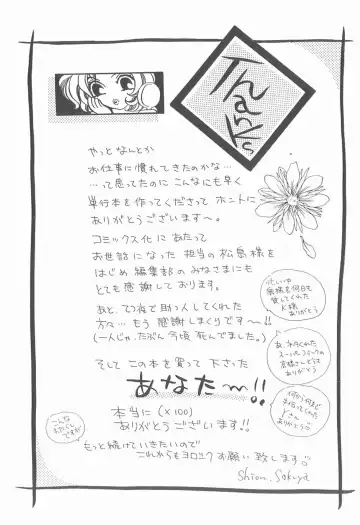 Thanks
やっと なんとか
お仕事に慣れてきたのかな…
…って思ってたのに こんなにも早く
単行本を作ってくださって ホントに
ありがとうございます〜。
コミックス化にあたって
お世話になった 担当の松島様を
はじめ 編集部のみなさまにも
とても感謝しております。
あと、てつ夜で助っ人してくれた
方々… もう 感謝しまくりです〜!!
(一人じゃ、たぶん 今頃 死んでました。)
そして この本を買って 下さった
あなた〜!!
本当に (×100)
ありがとうございます!!
もっと続けていきたいので
これからもヨロシク お願い致します
Shion. Sakuya
忙しい中
何日も
貸してくれた
ありがとう
あ、
くれた
ありがとう
こんな
ですが